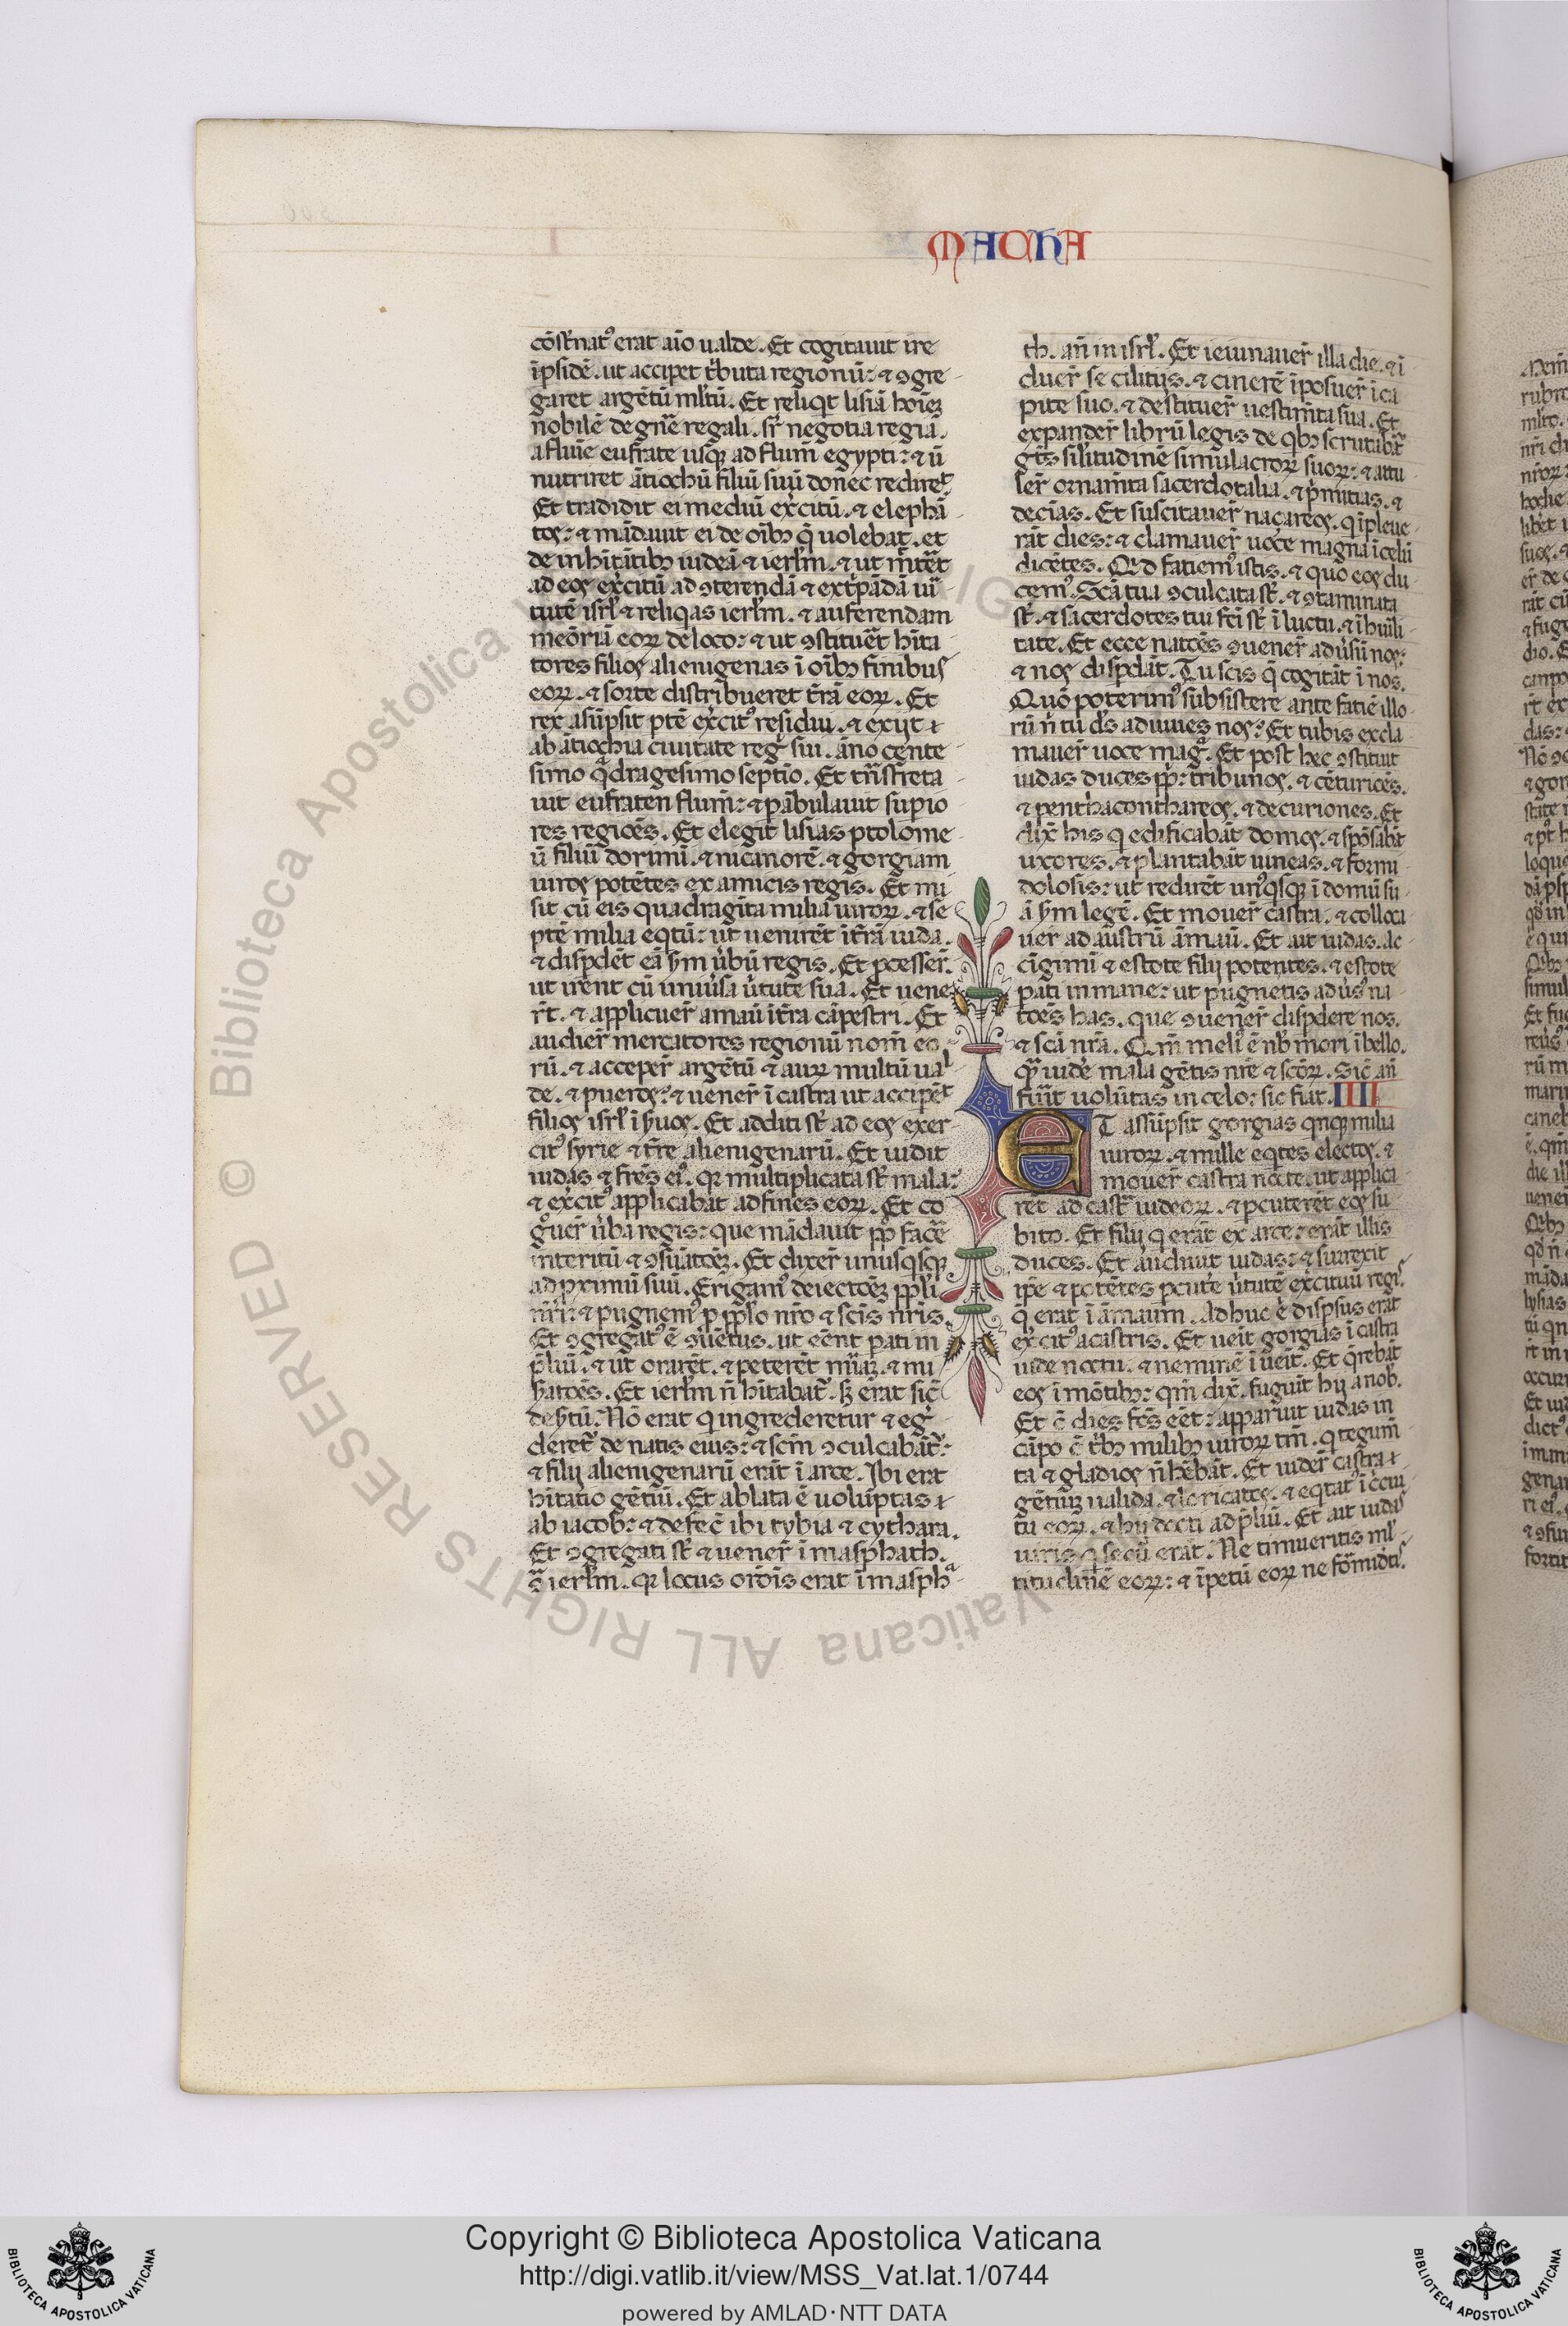 MACHA
cōst͛natꝰ erat aīo ualde. Et cogitauit ire
īpsidē. ut accip̄et t͛buta regionū: ⁊ ꝯgre
garet argētū ml̄tū. Et reliqt lisiā hoīez
nobilē de gn̄e regali. sr̄ negotia regia.
a fluīe eufrate usqꝫ ad flum̄ egypti: ⁊ ū
nutriret ātiochū filiū suū donec rediret.
Et tradidit ei mediū ex͛citū. ⁊ elephā
tos: ⁊ mādauit ei de oībꝫ q̄ uolebat. et
de inhītātibꝫ iudeā ⁊ ierl̄m. ⁊ ut mit̄et
ad eos ex͛citū ad ꝯterendā ⁊ ext͛pādā uir̄
tutē isrl̄ ⁊ reliqas ierl̄m. ⁊ auferendam
meōriā eoꝝ de loco: ⁊ ut ꝯstituēt hīta
tores filios alienigenas ī oībꝫ finibus
eoꝝ. ⁊ sorte distribueret t̄rā eoꝝ. Et
rex asūpsit ptē ex͛citꝰ residui. ⁊ exijt
ab ātiochia ciuitate reg͛ sui. āno cente
simo qͣdragesimo septīo. Et trn̄sfreta
uit eufraten flum̄: ⁊ p̄ābulauit supio
res regiōēs. Et elegit lisias ptolome
ū filiū dorimi. ⁊ nicanorē. ⁊ gorgiam
uiros potētes ex amicis regis. Et mi
sit cū eis quadragīta milia uiroꝝ. ⁊ se
ptē milia eqtū: ut uenirēt ī t̄rā iuda.
⁊ dispdēt eā ẜm u͛bū regis. Et p̄cesser̄.
ut irēnt cū uniu͛sa u͛tute sua. Et uene
rt̄. ⁊ applicuer̄ amaū ī t̄ra cāpestri. Et
audier̄ mercatores regionū nom̄ eo
rū. ⁊ acceper̄ argētū ⁊ auꝝ multū ual
de. ⁊ pueros: ⁊ uener̄ ī castra ut accipēt
filios isrl̄ ī ẜuos. Et additi st̄ ad eos exer
citꝰ syrie ⁊ t̄re alienigenarū. Et uidit
iudas ⁊ frēs eiꝰ. qꝛ multiplicata st̄ mala:
⁊ ex͛citꝰ applicabat ad fines eoꝝ. Et co
gͦuer̄ u͛ba regis: que mādauit pp̄lo facē
interitū ⁊ ꝯsūatōez. Et dixer̄ unusqsqꝫ
ad pximū suū. Erigamꝰ deiectōez pp̄li
nr̄i: ⁊ pugnemꝰ p pp̄lo nr̄o ⁊ scīs nr̄is.
Et ꝯgregatꝰ ē ꝯuētus. ut eēnt pati in
p̄liū. ⁊ ut orarēt. ⁊ peterēt mīaz. ⁊ mi
ẜatōēs. Et ierl̄m n̄ hītabat̄. sꝫ erat sic̄
deẜtū. Nō erat q ingrederetur ⁊ eg͛
deret̄ de natis eius: ⁊ scm̄ ꝯculcabāt̄:
⁊ filij alienigenarū erāt ī arce. Ibi erat
hītatio gētiū. Et ablata ē uoluptas
ab iacob: ⁊ defec̄ ibi tybia ⁊ cythara.
Et ꝯgregati st̄ ⁊ uener̄ ī masphath.
ꝯͣ ierl̄m. qꝛ locus orōis erat ī masphͣ
th. an̄ in isrl̄. Et ieiunauer̄ illa die. ⁊ ī
duer̄ se cilitijs. ⁊ cinerē īposuer̄ ī ca
pite suo. ⁊ destituer̄ uestim̄ta sua. Et
expander̄ librū legis de qbꝫ scrutabāt̄
gt̄s sil̄itudinē simulacroꝝ suoꝝ: ⁊ attu
ler̄ ornam̄ta sacerdotalia. ⁊ p͛mitias. ⁊
decīas. Et suscitauer̄ naçareos. q īpleue
rāt dies: ⁊ clamauer̄ uoce magna ī celū
dicētes. Qͥd fatiemꝰ istis. ⁊ quo eos du
cemꝰ. Scā tua ꝯculcata st̄. ⁊ ꝯtaminata
st̄. ⁊ sacerdotes tui fc̄i st̄ ī luctu. ⁊ ī huīli
tate. Et ecce natōēs ꝯuener̄ adu͛sū nos:
⁊ nos dispdāt. Tu scis q̄ cogitāt ī nos.
Quō poterimꝰ subsistere ante fatiē illo
rū n̄ tu ds̄ adiuues nos: Et tubis excla
mauer̄ uoce magͣ. Et post hec ꝯstituit
iudas duces pp̄li: tribunos. ⁊ cēturiōēs.
⁊ penthaconthareos. ⁊ decuriones. Et
dix̄ his q edificabāt domos. ⁊ spōsabāt
uxores. ⁊ plantabāt uineas. ⁊ formi
dolosis: ut redirēt unꝰqsqꝫ ī domū su
ā ẜm legē. Et mouer̄ castra. ⁊ colloca
uer̄ ad austrū āmaū. Et ait iudas. Ac
cīgimī ⁊ estote filij potentes. ⁊ estote
pati in mane: ut pugnetis adu͛sꝰ na
tōēs has. que ꝯuener̄ dispdere nos.
⁊ scā nr̄a. Qm̄ meliꝰ ē nob̄ mori ī bello.
qͣ uide͛ mala gētis nr̄e ⁊ scōꝝ. Sic̄ aū
fuīt uolūtas in celo: sic fiat. IIII
ET assūpsit gorgias qnqꝫ milia
uiroꝝ. ⁊ mille eqtes electos. ⁊
mouer̄ castra nocte. ut applica
rēt ad castͣ iudeoꝝ. ⁊ pcuterēt eos su
bito. Et filij q erāt ex arce: erāt illis
duces. Et audiuit iudas: ⁊ surexit
ip̄e ⁊ potētes pcute͛ u͛tutē ex͛cituū regis.
q̄ erat ī āmaum. Adhuc ē dispsus erat
ex͛citꝰ a castris. Et uēit gorgias ī castra
iude noctu. ⁊ neminē īuēit. Et q͛rebat
eos ī mōtibꝫ: qm̄ dix̄. fugiūt hij a nob̄.
Et c̄ dies fc̄s eēt: apparuit iudas in
cāpo c̄ t͛bꝫ milibꝫ uiroꝝ tm̄. q tegum̄
ta ⁊ gladios n̄ hēbāt. Et uider̄ castra
gētiūꝫ ualida. ⁊ loricatos. ⁊ eqtatꝰ ī c͛cui
tu eoꝝ. ⁊ hij docti ad p̄liū. Et ait iudas
uiris q secū erāt. Ne timueritis ml̄
titudinē eoꝝ: ⁊ īpetū eoꝝ ne formidetis.
Copyright © Biblioteca Apostolica Vaticana
http://digi.vatlib.it/view/MSS_Vat.lat.1/0744
powered by AMLAD·NTT DATA
BIBLIOTECA APOSTOLICA VATICANA
BIBLIOTECA APOSTOLICA VATICANA